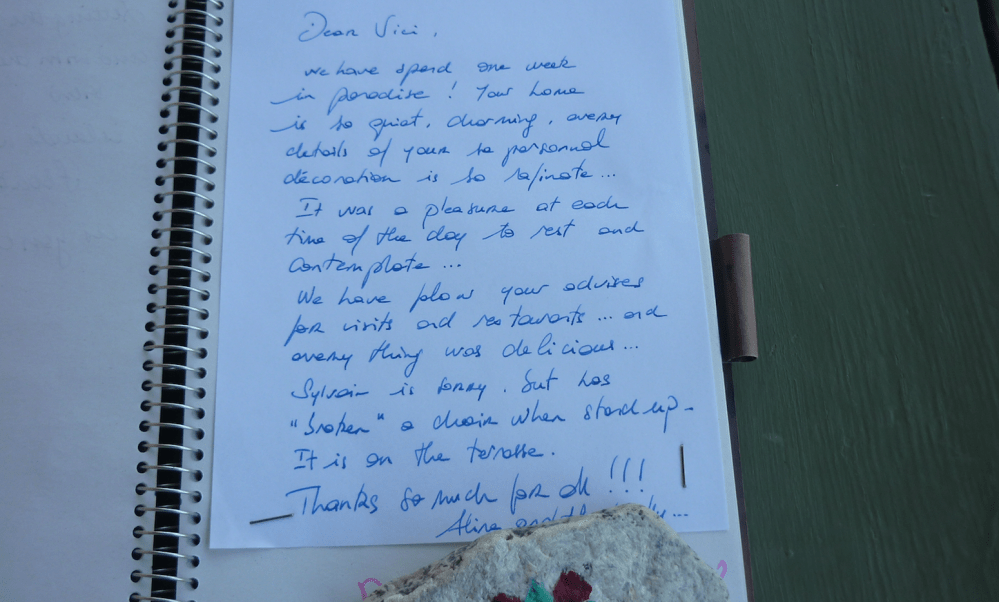 Dear Vici,
we have spend one week
in paradise ! Your home
is so quiet, charming, every
details of your so personnal
décoration is so rafinate...
It was a pleasure at each
time of the day to rest and
contemplate...
We have folow your advises
for visits and restaurants... and
every thing was delicious...
Sylvain is sorry, but has
"broken" a chair when stand up.
It is on the terrasse.
Thanks so much for all !!!
Aline and